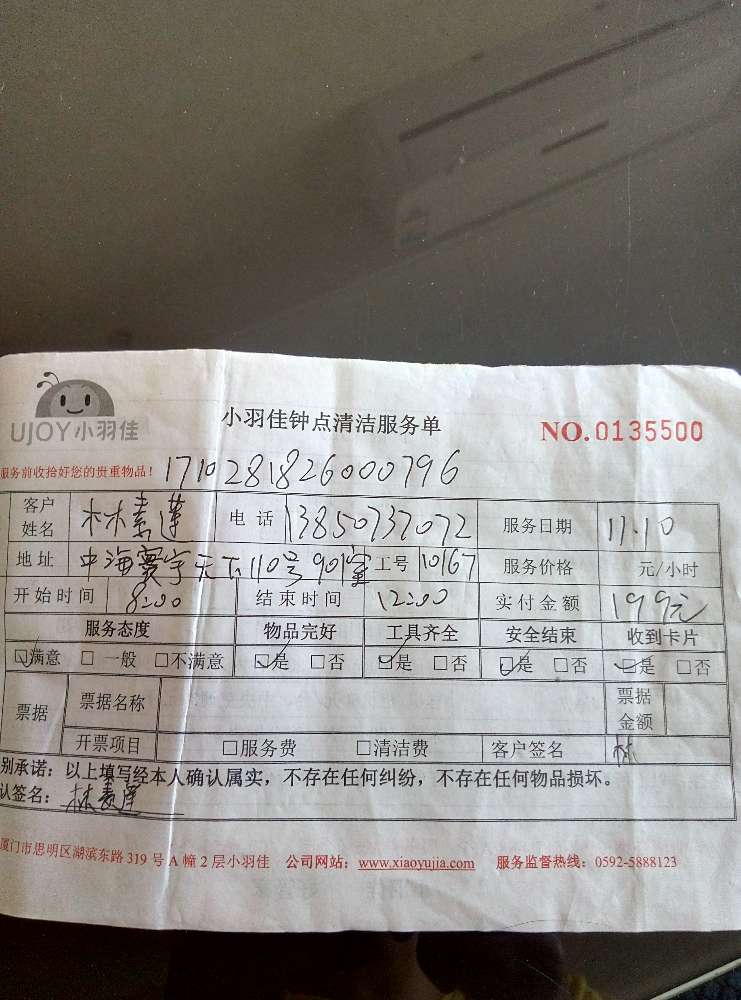 UJOY小羽佳
小羽佳钟点清洁服务单
NO.0135500
服务前收拾好您的贵重物品！ 1710281826000796
客户姓名 林素莲 电话 13850737072 服务日期 11.10
地址 中海寰宇天下110号901室 工号 10167 服务价格 元/小时
开始时间 8:00 结束时间 12:00 实付金额 199元
服务态度 物品完好 工具齐全 安全结束 收到卡片
☑满意 □一般 □不满意 ☑是 □否 ☑是 □否 ☑是 □否 ☑是 □否
票据 票据名称 票据金额
开票项目 □服务费 □清洁费 客户签名 林
别承诺：以上填写经本人确认属实，不存在任何纠纷，不存在任何物品损坏。
认签名：林素莲
厦门市思明区湖滨东路319号A幢2层小羽佳 公司网站：www.xiaoyujia.com 服务监督热线：0592-5888123